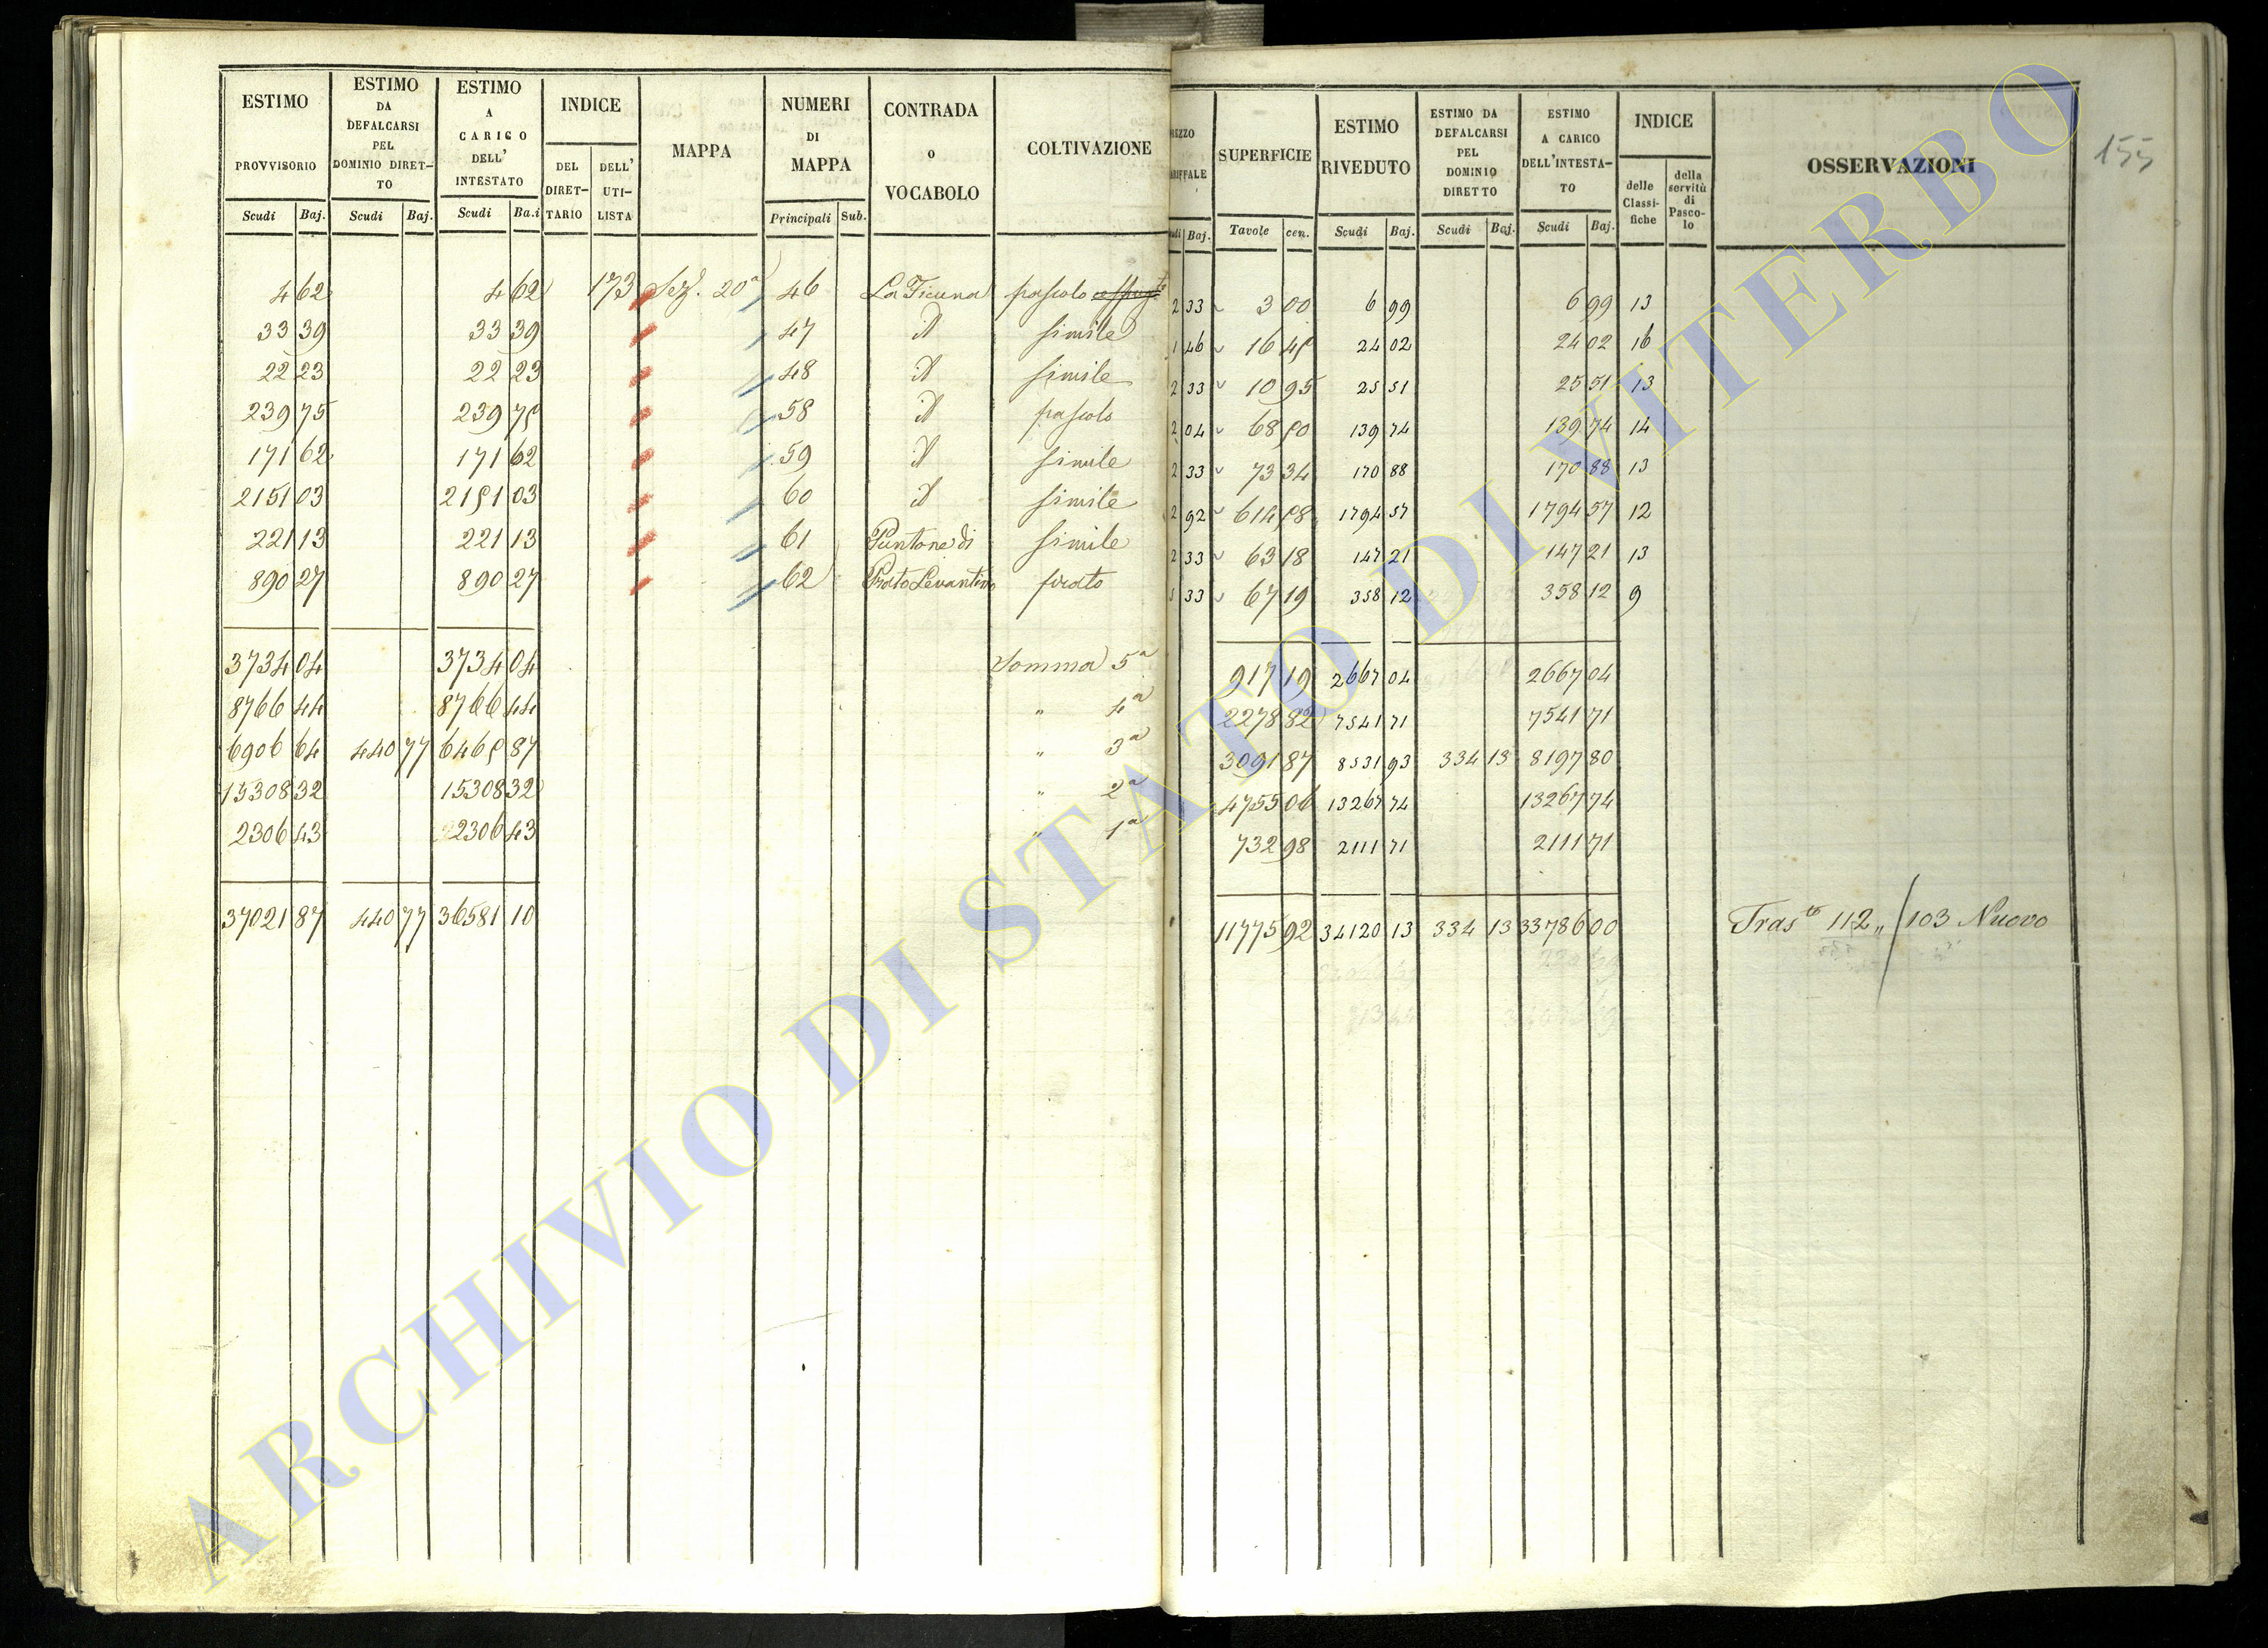 ESTIMO PROVVISORIO Scudi Baj. | ESTIMO DA DEFALCARSI PEL DOMINIO DIRETTO Scudi Baj. | ESTIMO A CARICO DELL' INTESTATO Scudi Ba.i | INDICE DEL DIRETTARIO DELL' UTILISTA | MAPPA | NUMERI DI MAPPA Principali Sub. | CONTRADA O VOCABOLO | COLTIVAZIONE
4 62 4 62 173 Sez. 20a 46 La Ficuna pascolo
33 39 33 39 47 Id simile
22 23 22 23 48 Id simile
239 75 239 75 58 Id pascolo
171 62 171 62 59 Id simile
2151 03 2151 03 60 Id simile
221 13 221 13 61 Puntone di simile
890 27 890 27 62 Prato Levantino prato
3734 04 3734 04 Somma 5a
8766 44 8766 44 " 4a
6906 64 440 77 6465 87 " 3a
15308 32 15308 32 " 2a
2306 43 2306 43 " 1a
37021 87 440 77 36581 10
REZZO RIFFALE udi Baj. | SUPERFICIE Tavole cen. | ESTIMO RIVEDUTO Scudi Baj. | ESTIMO DA DEFALCARSI PEL DOMINIO DIRETTO Scudi Baj. | ESTIMO A CARICO DELL'INTESTATO Scudi Baj. | INDICE delle Classifiche della servitù di Pascolo | OSSERVAZIONI
155
2 33 3 00 6 99 6 99 13
1 46 16 45 24 02 24 02 16
2 33 10 95 25 51 25 51 13
2 04 68 50 139 74 139 74 14
2 33 73 34 170 88 170 88 13
2 92 614 58 1794 57 1794 57 12
2 33 63 18 147 21 147 21 13
5 33 67 19 358 12 358 12 9
917 19 2667 04 2667 04
2278 82 7541 71 7541 71
3091 87 8531 93 334 13 8197 80
4755 06 13267 74 13267 74
732 98 2111 71 2111 71
11775 92 34120 13 334 13 33786 00 Trasto 112 " / 103 Nuovo
ARCHIVIO DI STATO DI VITERBO